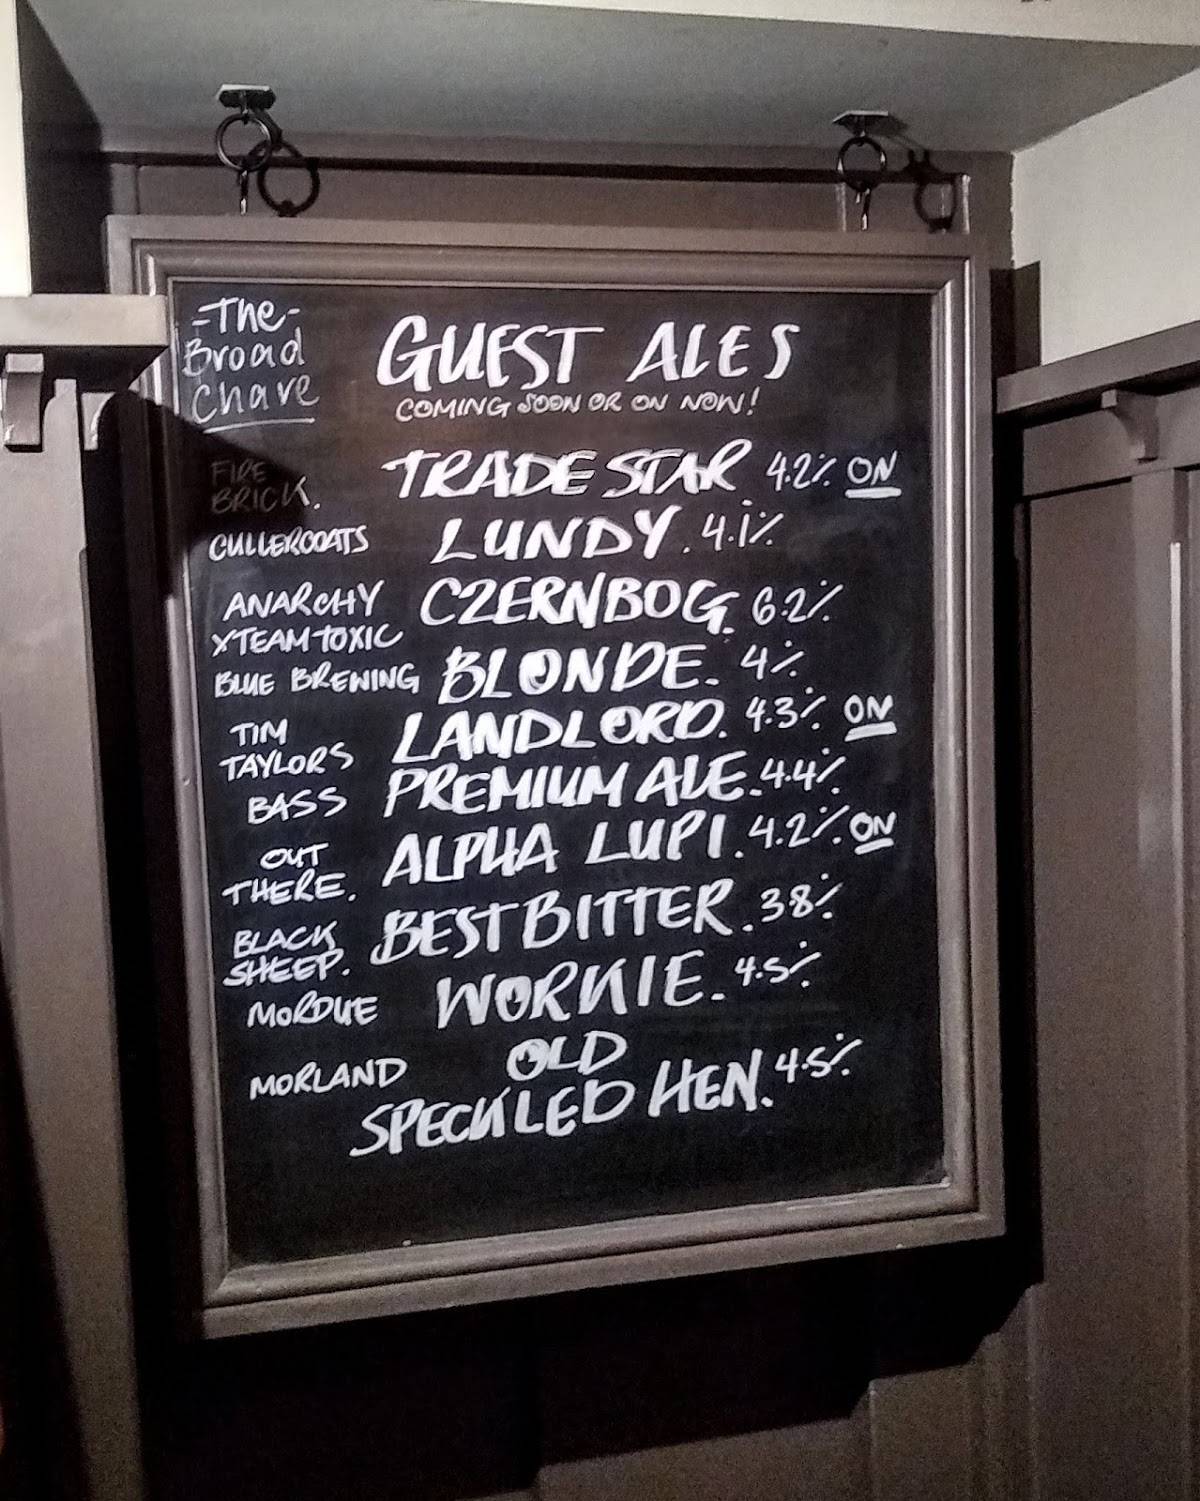 -The-
Broad
Chare
GUEST ALES
COMING SOON OR ON NOW!
FIRE
BRICK.
TRADE STAR 4.2% ON
CULLERCOATS LUNDY. 4.1%
ANARCHY
X TEAM TOXIC
CZERNBOG. 6.2%
BLUE BREWING BLONDE. 4%
TIM
TAYLORS
LANDLORD. 4.3% ON
BASS PREMIUM ALE. 4.4%
OUT
THERE.
ALPHA LUPI. 4.2% ON
BLACK
SHEEP.
BEST BITTER. 38%
MORDUE WORKIE. 4.5%
MORLAND OLD
SPECKLED HEN. 4.5%